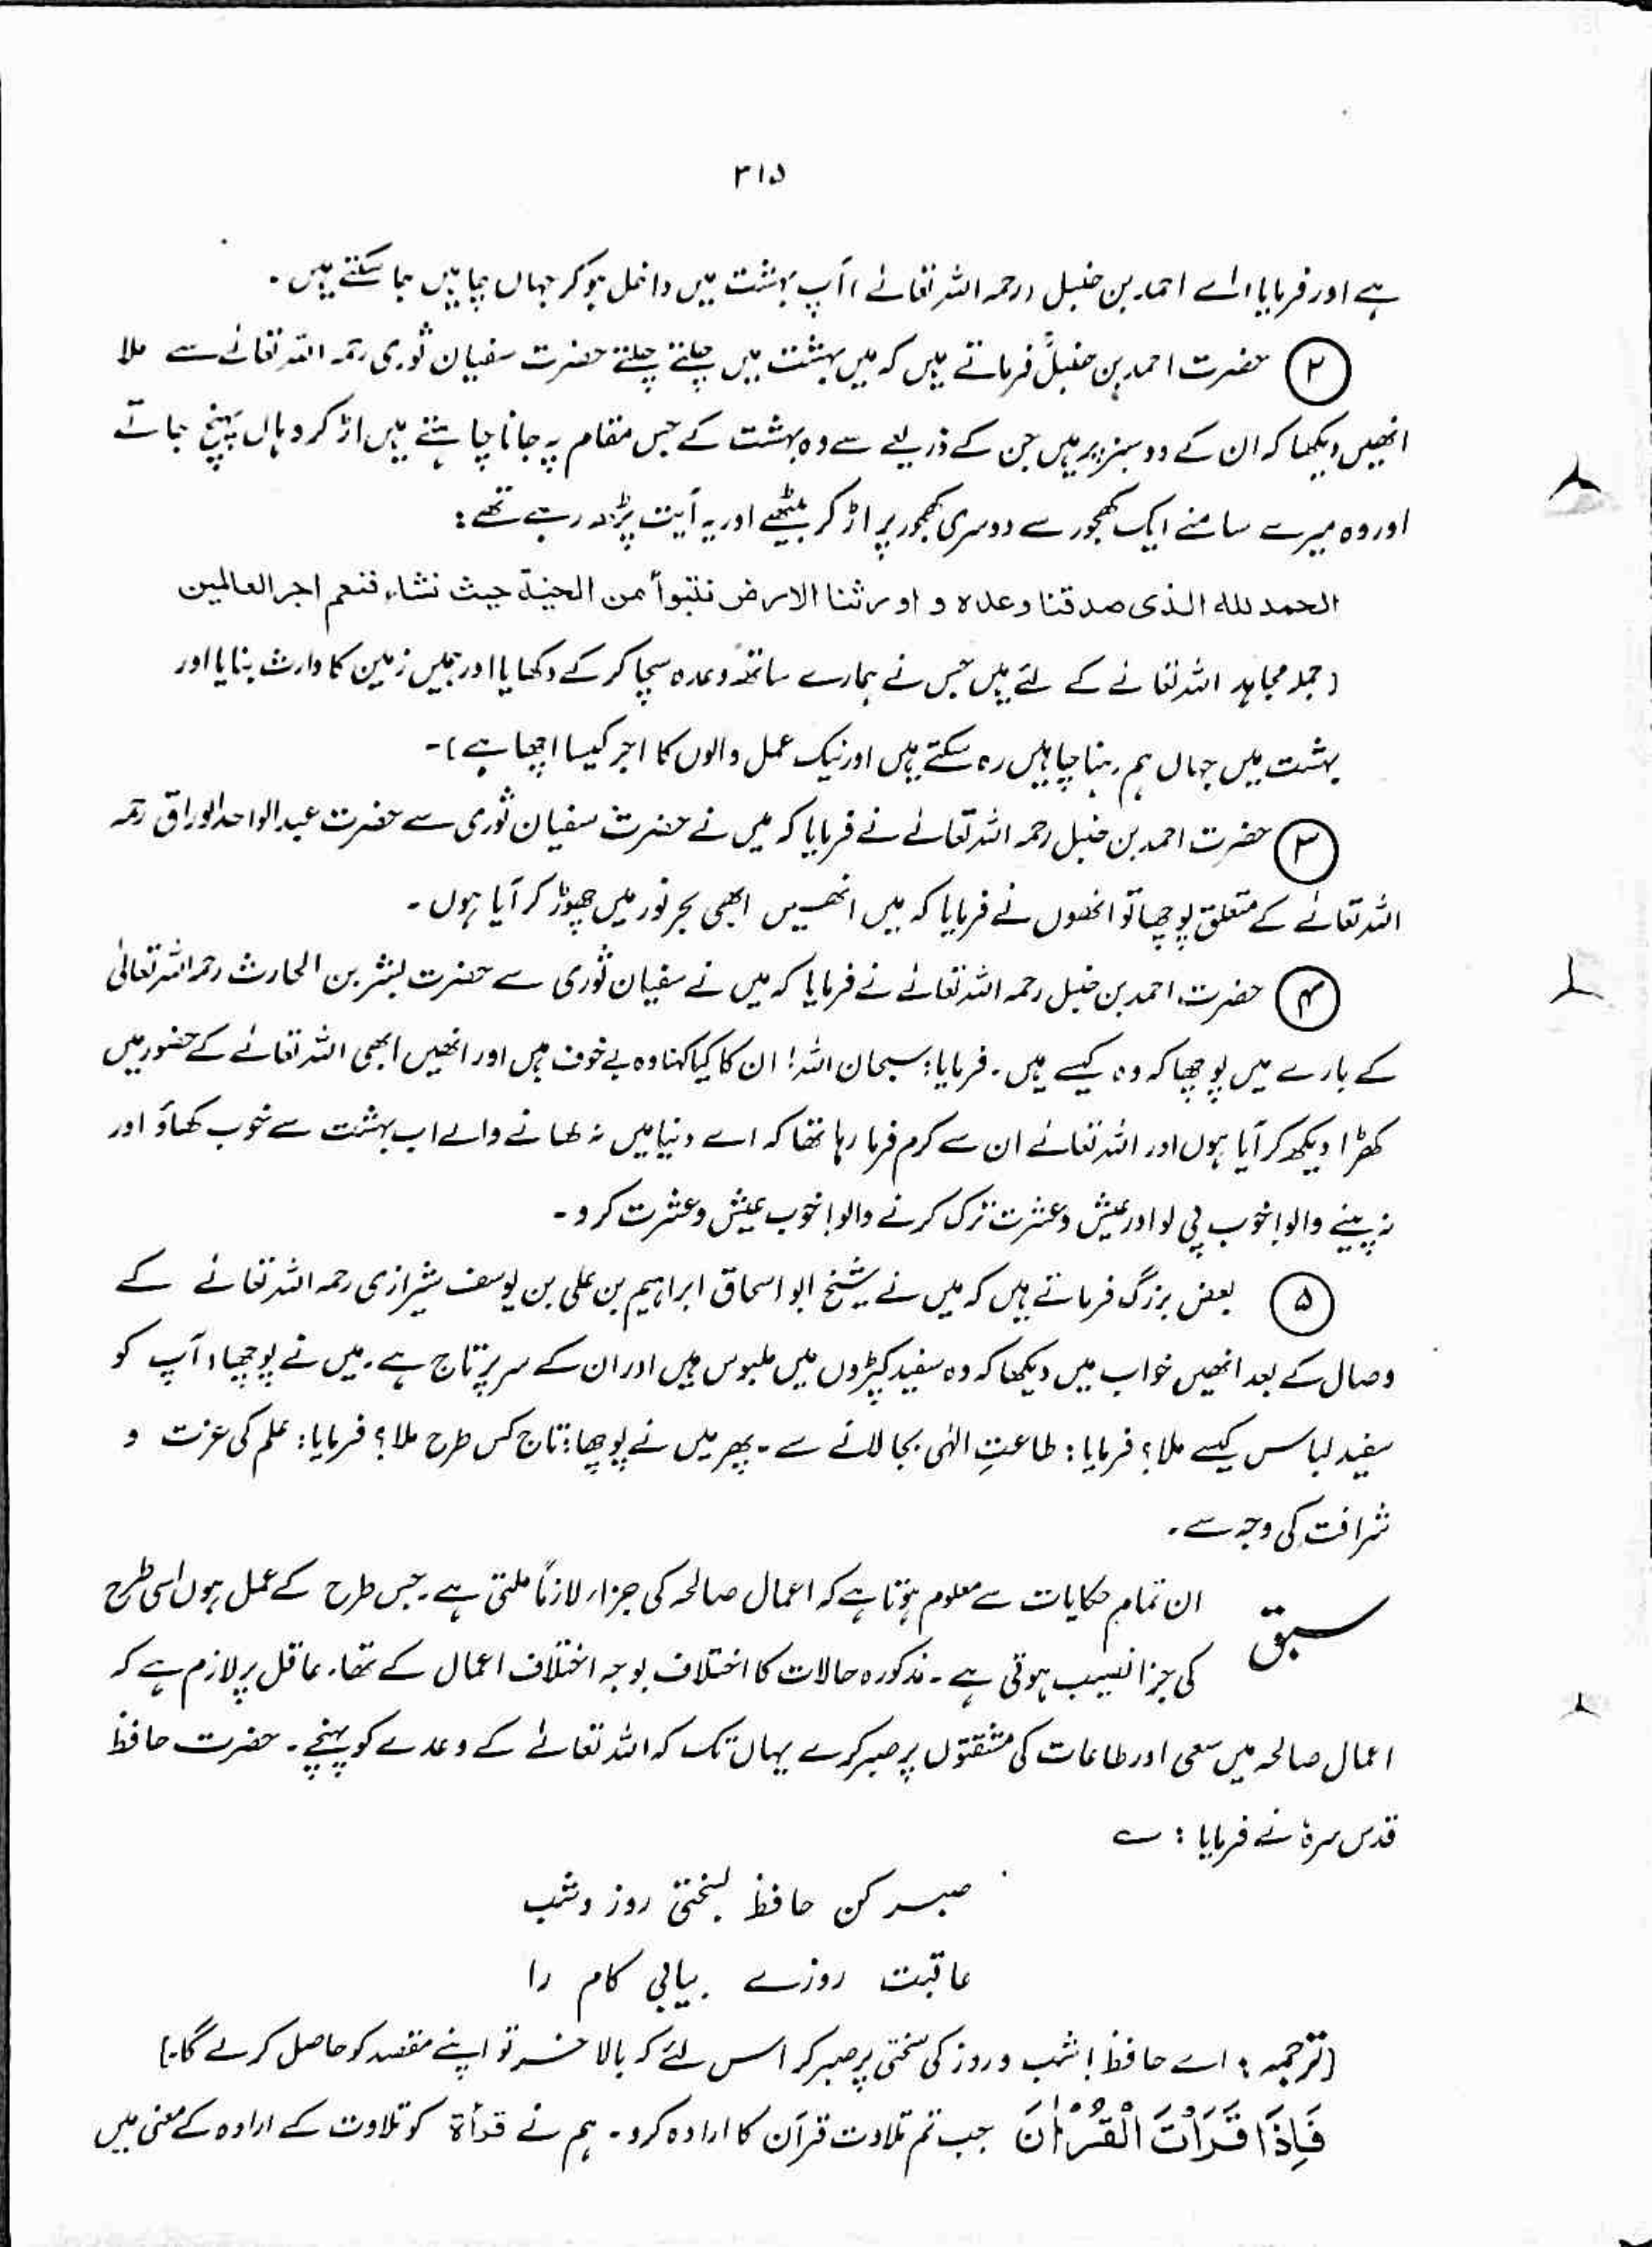 ۳۱۵
ہے اور فرمایا، اے احمد بن حنبل (رحمہ اللہ تعالےٰ) آپ بہشت میں داخل ہو کر جہاں چاہیں جا سکتے ہیں۔
② حضرت احمد بن حنبلؒ فرماتے ہیں کہ میں بہشت میں چلتے چلتے حضرت سفیان ثوری رحمہ اللہ تعالےٰ سے ملا
انھیں دیکھا کہ ان کے دو سبز پر ہیں جن کے ذریعے سے وہ بہشت کے جس مقام پہ جانا چاہتے ہیں اڑ کر وہاں پہنچ جاتے
اور وہ میرے سامنے ایک کھجور سے دوسری کھجور پر اڑ کر بیٹھے اور یہ آیت پڑھ رہے تھے:
الحمد للہ الذی صدقنا وعدہ و اورثنا الارض نتبوأ من الجنۃ حیث نشاء فنعم اجر العالمین
(جملہ مجاہد اللہ تعالےٰ کے لئے ہیں جس نے ہمارے ساتھ وعدہ سچا کر کے دکھایا اور ہمیں زمین کا وارث بنایا اور
بہشت میں جہاں ہم رہنا چاہیں رہ سکتے ہیں اور نیک عمل والوں کا اجر کیسا اچھا ہے)۔
③ حضرت احمد بن حنبل رحمہ اللہ تعالےٰ نے فرمایا کہ میں نے حضرت سفیان ثوری سے حضرت عبدالواحد الوراق رحمہ
اللہ تعالےٰ کے متعلق پوچھا تو انھوں نے فرمایا کہ میں انھیں ابھی بحر نور میں چھوڑ کر آیا ہوں۔
④ حضرت احمد بن حنبل رحمہ اللہ تعالےٰ نے فرمایا کہ میں نے سفیان ثوری سے حضرت بشر بن الحارث رحمہ اللہ تعالیٰ
کے بارے میں پوچھا کہ وہ کیسے ہیں۔ فرمایا: سبحان اللہ! ان کا کیا کہنا وہ بے خوف ہیں اور انھیں ابھی اللہ تعالےٰ کے حضور میں
کھڑا دیکھ کر آیا ہوں اور اللہ تعالےٰ ان سے کرم فرما رہا تھا کہ اے دنیا میں نہ کھانے والے اب بہشت سے خوب کھاؤ اور
نہ پینے والو! خوب پی لو اور عیش و عشرت ترک کرنے والو! خوب عیش و عشرت کرو۔
⑤ بعض بزرگ فرماتے ہیں کہ میں نے شیخ ابو اسحاق ابراہیم بن علی بن یوسف شیرازی رحمہ اللہ تعالےٰ کے
وصال کے بعد انھیں خواب میں دیکھا کہ وہ سفید کپڑوں میں ملبوس ہیں اور ان کے سر پر تاج ہے۔ میں نے پوچھا، آپ کو
سفید لباس کیسے ملا؟ فرمایا: طاعتِ الٰہی بجا لانے سے۔ پھر میں نے پوچھا: تاج کس طرح ملا؟ فرمایا: علم کی عزت و
شرافت کی وجہ سے۔
سبق ان تمام حکایات سے معلوم ہوتا ہے کہ اعمال صالحہ کی جزاء لازماً ملتی ہے۔ جس طرح کے عمل ہوں اسی طرح
کی جزا نصیب ہوتی ہے۔ مذکورہ حالات کا اختلاف بوجہ اختلاف اعمال کے تھا۔ عاقل پر لازم ہے کہ
اعمال صالحہ میں سعی اور طاعات کی مشقتوں پر صبر کرے یہاں تک کہ اللہ تعالےٰ کے وعدے کو پہنچے۔ حضرت حافظ
قدس سرہٗ نے فرمایا: ؎
صبر کن حافظ بسختی روز و شب
عاقبت روزے بیابی کام را
(ترجمہ: اے حافظ! شب و روز کی سختی پر صبر کر اس لئے کہ بالآخر تو اپنے مقصد کو حاصل کر لے گا۔)
فَاِذَا قَرَاْتَ الْقُرْاٰنَ جب تم تلاوت قرآن کا ارادہ کرو۔ ہم نے قرأۃ کو تلاوت کے ارادہ کے معنی میں